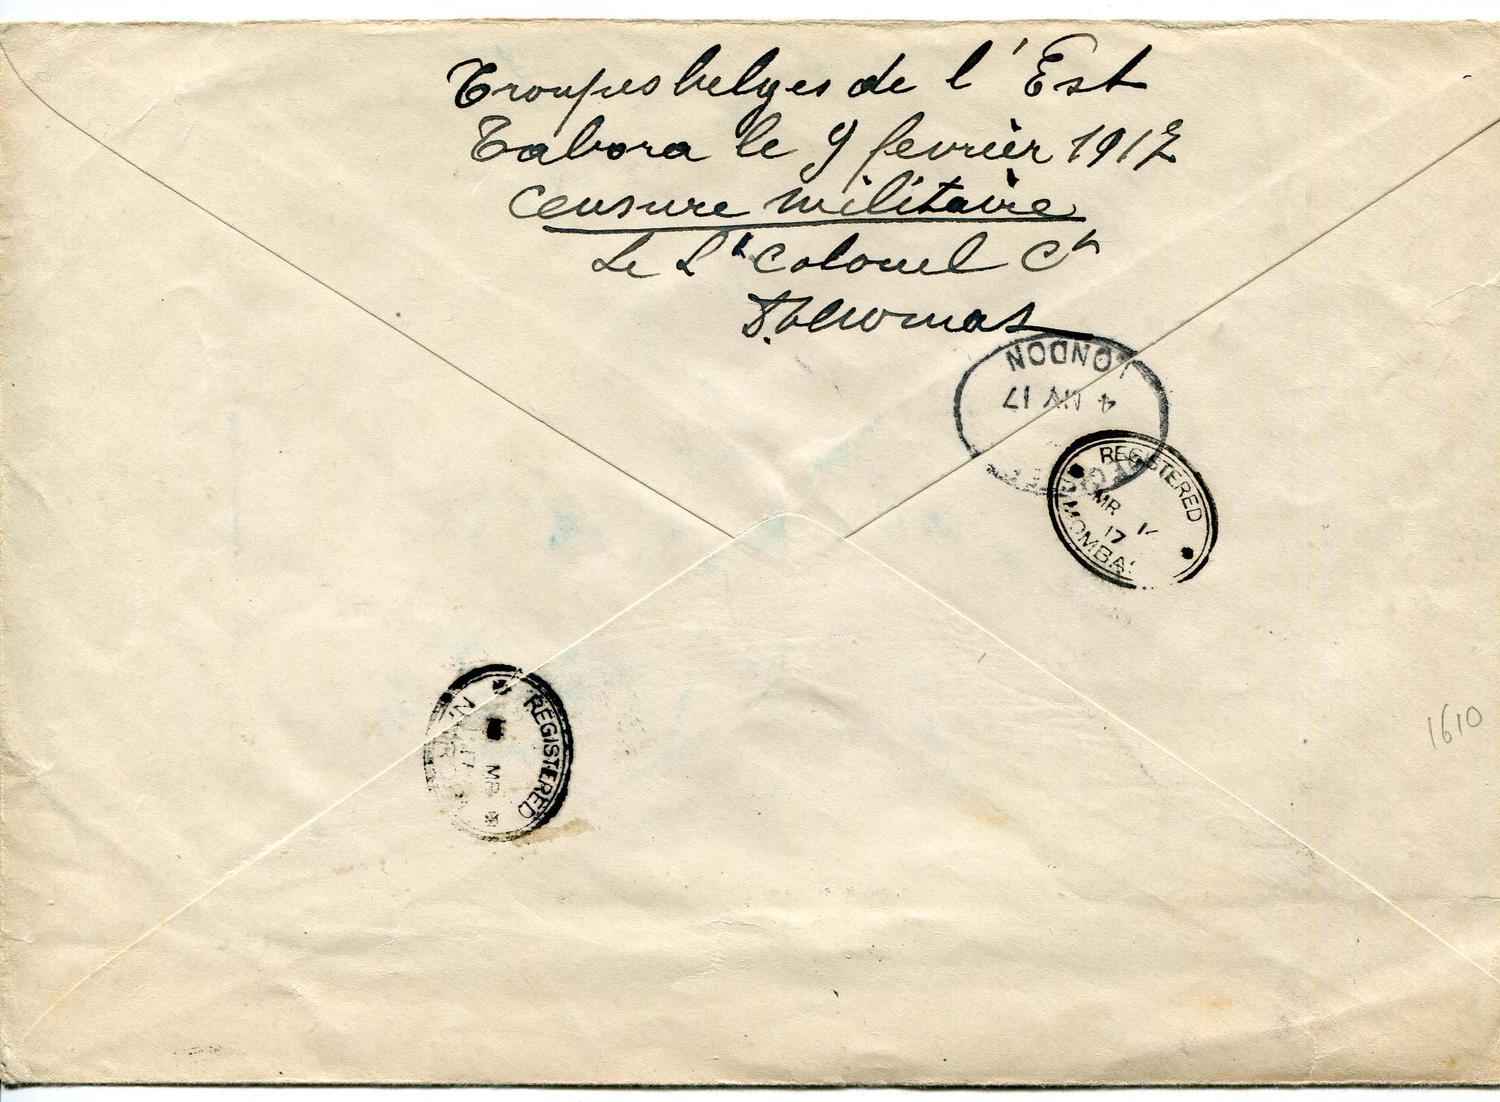 Troupes belges de l'Est
Tabora le 9 fevrièr 1917
Censure militaire
Le Lt Colonel Ct
Thomas
LONDON
4 MY 17
REGISTERED
MR
17
MOMBA
REGISTERED
MR
17
1610